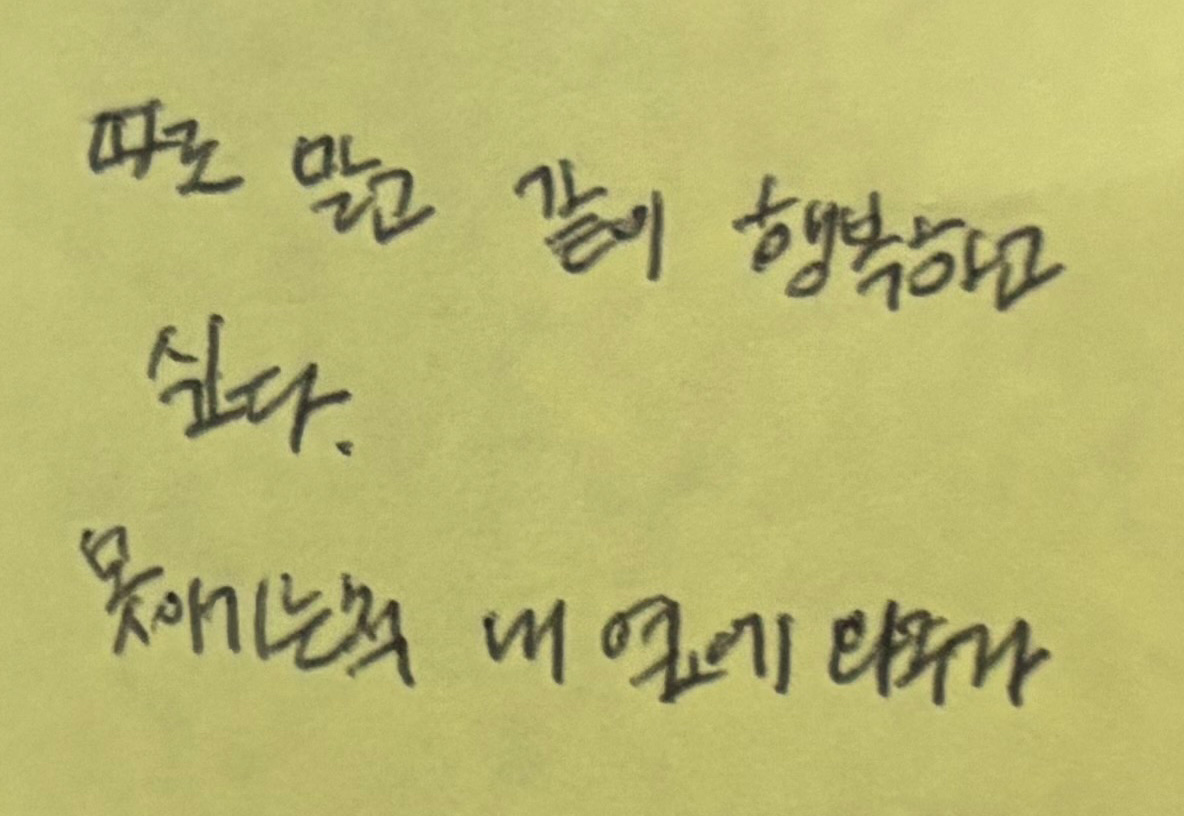 따로 말고 같이 행복하고
싶다.
못이기는척 내 옆에 와주라